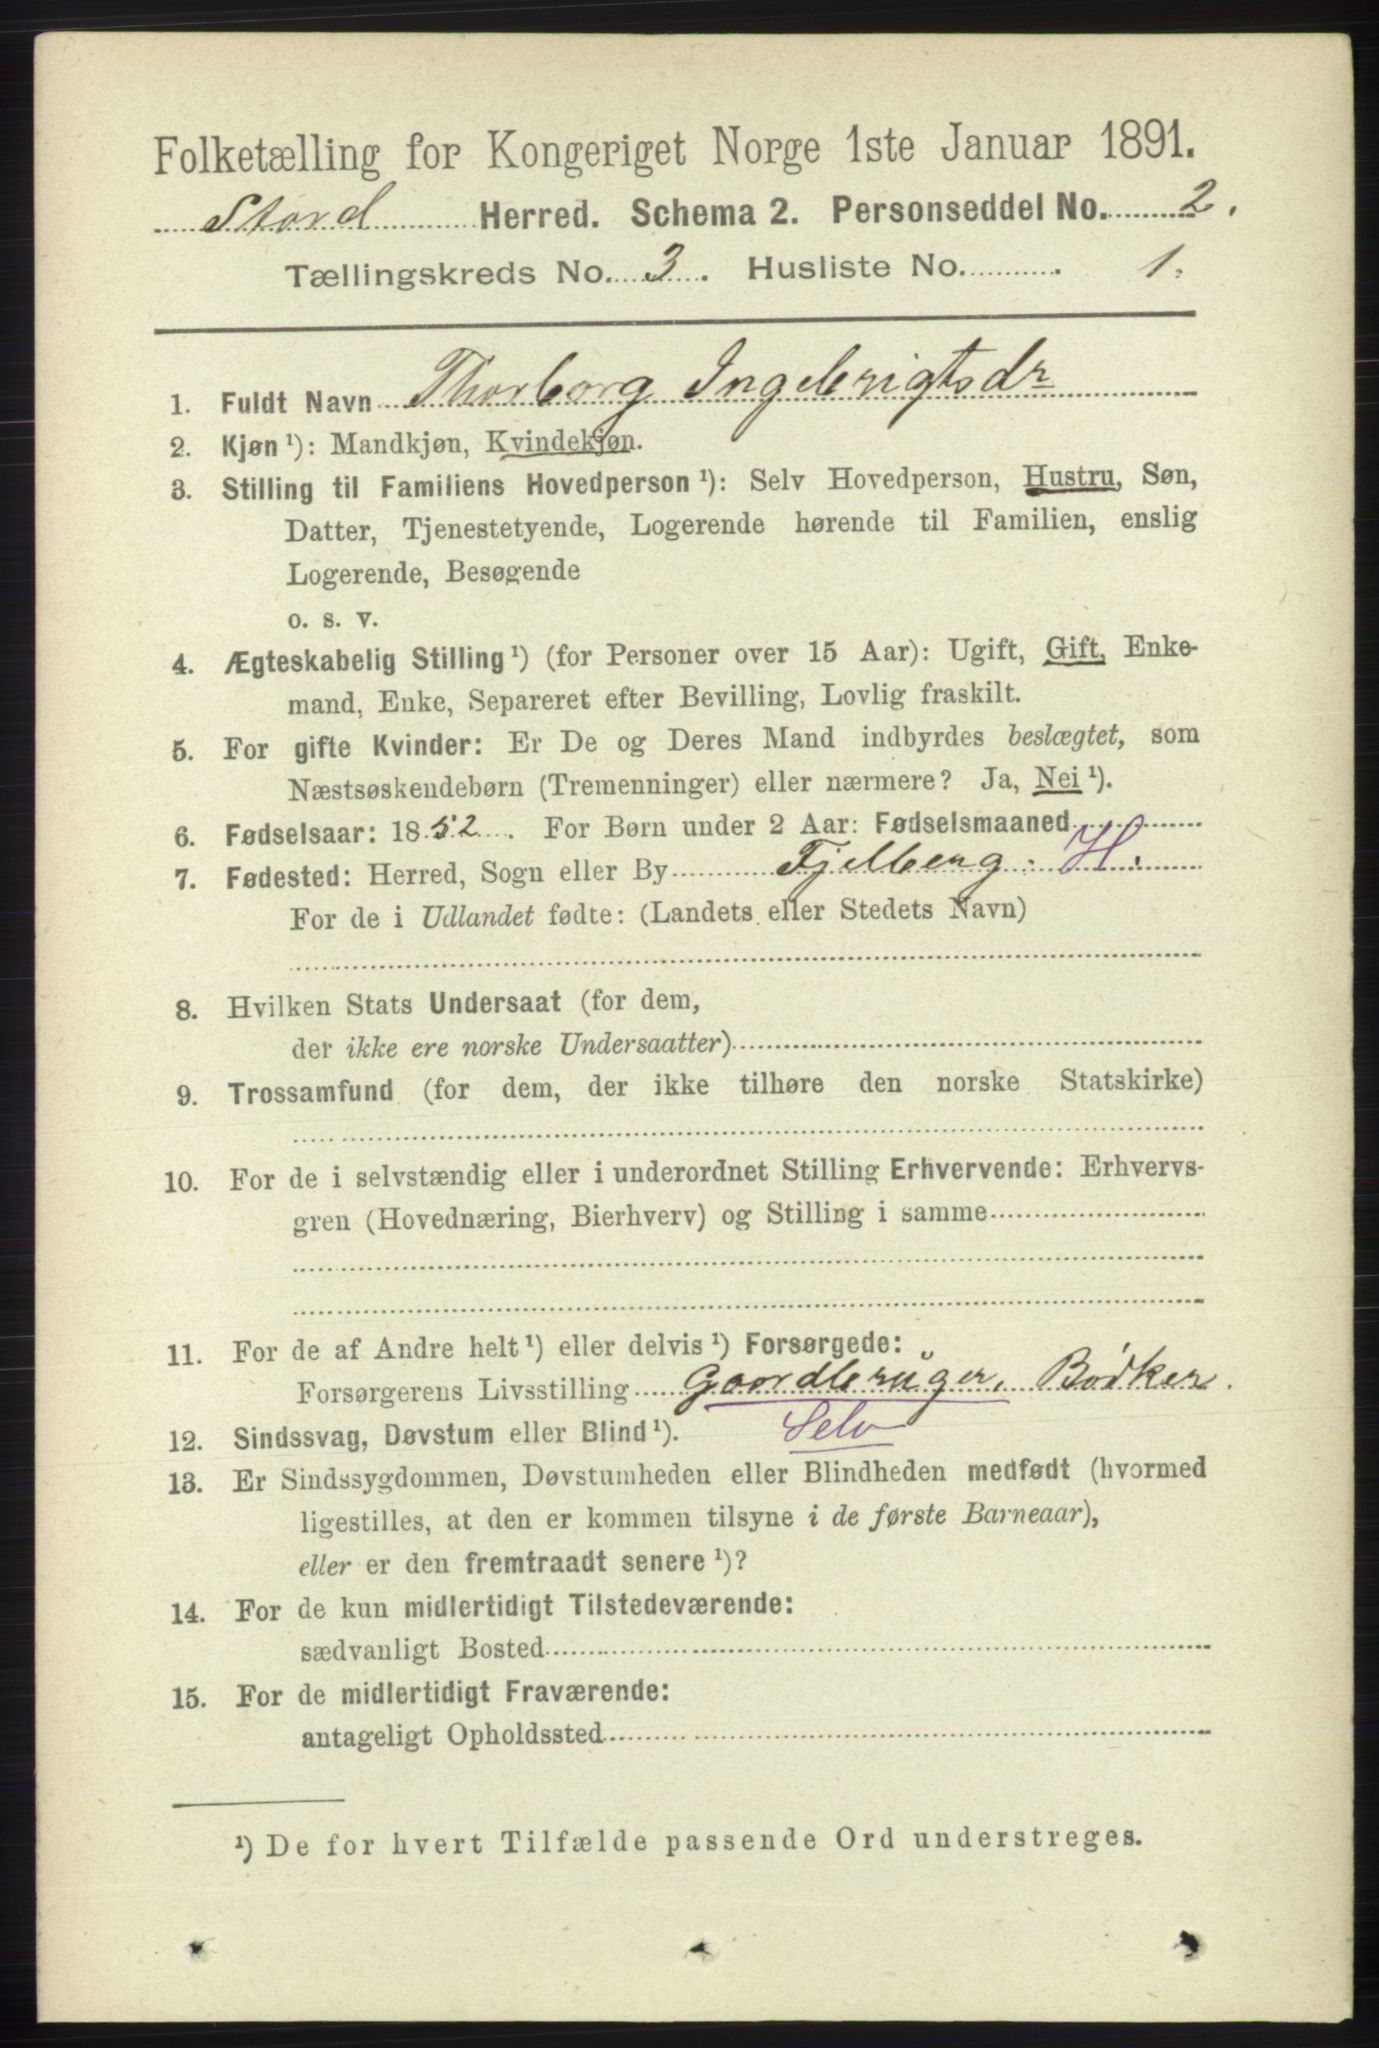 Folketælling for Kongeriget Norge 1ste Januar 1891.
Stord Herred. Schema 2. Personseddel No. 2.
Tællingskreds No. 3. Husliste No. 1.
1. Fuldt Navn Thorborg Ingebrigtsdr
2. Kjøn ¹): Mandkjøn, Kvindekjøn.
3. Stilling til Familiens Hovedperson ¹): Selv Hovedperson, Hustru, Søn,
Datter, Tjenestetyende, Logerende hørende til Familien, enslig
Logerende, Besøgende
o. s. v.
4. Ægteskabelig Stilling ¹) (for Personer over 15 Aar): Ugift, Gift, Enke-
mand, Enke, Separeret efter Bevilling, Lovlig fraskilt.
5. For gifte Kvinder: Er De og Deres Mand indbyrdes beslægtet, som
Næstsøskendebørn (Tremenninger) eller nærmere? Ja, Nei ¹).
6. Fødselsaar: 1852. For Børn under 2 Aar: Fødselsmaaned
7. Fødested: Herred, Sogn eller By Fjelberg. H.
For de i Udlandet fødte: (Landets eller Stedets Navn)
8. Hvilken Stats Undersaat (for dem,
der ikke ere norske Undersaatter)
9. Trossamfund (for dem, der ikke tilhøre den norske Statskirke)
10. For de i selvstændig eller i underordnet Stilling Erhvervende: Erhvervs-
gren (Hovednæring, Bierhverv) og Stilling i samme
11. For de af Andre helt ¹) eller delvis ¹) Forsørgede:
Forsørgerens Livsstilling Gaardbrüger, Bödker.
12. Sindssvag, Døvstum eller Blind ¹). Selv
13. Er Sindssygdommen, Døvstumheden eller Blindheden medfødt (hvormed
ligestilles, at den er kommen tilsyne i de første Barneaar),
eller er den fremtraadt senere ¹)?
14. For de kun midlertidigt Tilstedeværende:
sædvanligt Bosted
15. For de midlertidigt Fraværende:
antageligt Opholdssted
¹) De for hvert Tilfælde passende Ord understreges.